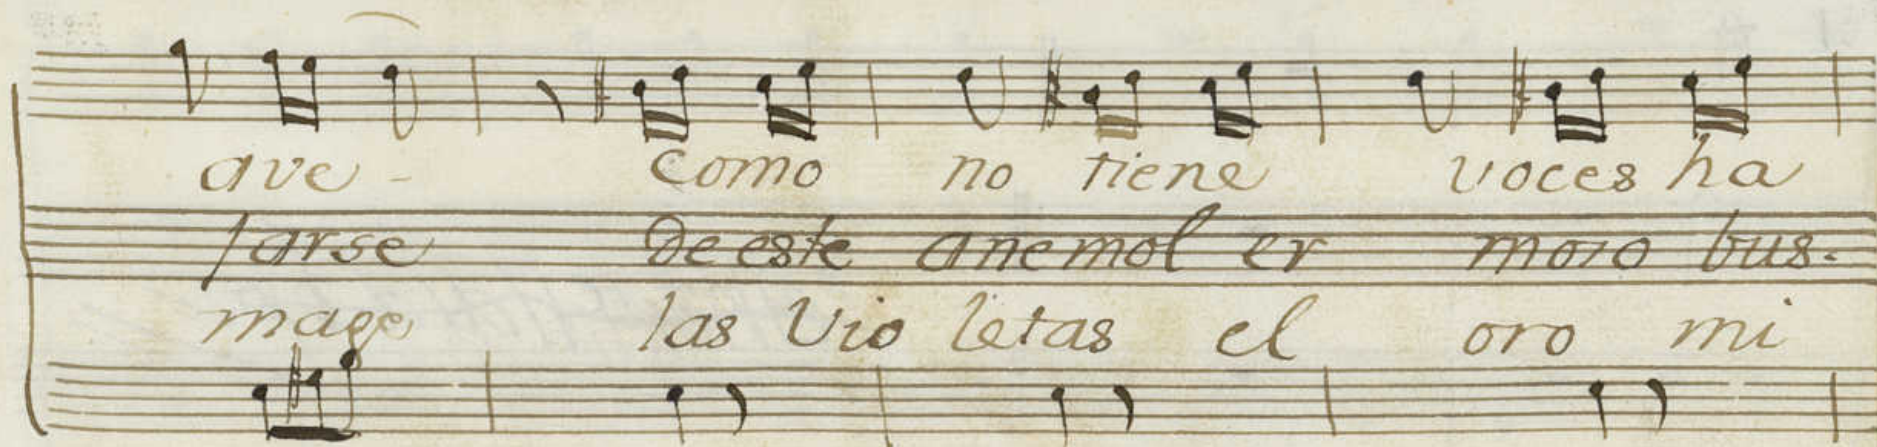 ave - como no tiene voces ha
jarse de este anemol er moso bus-
mage las Vio letas el oro mi